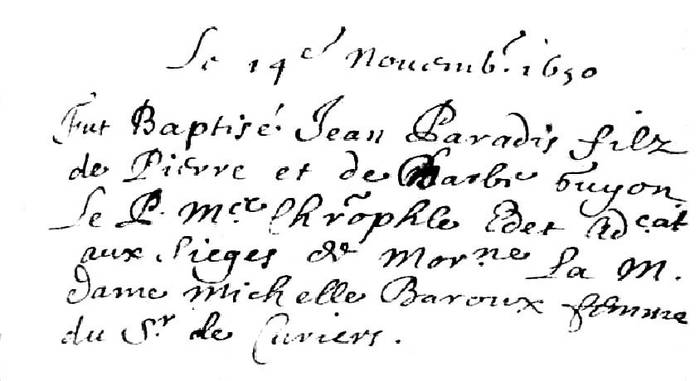 Le 14e Nouemb. 1650
Fut Baptisé Jean Paradis filz
de Pierre et de Barbe Guyon
Le P. Mre Chrõphle Edet Adcat
aux sieges de Morne La M.
Dame Michelle Baroux femme
du Sr de Curiers.